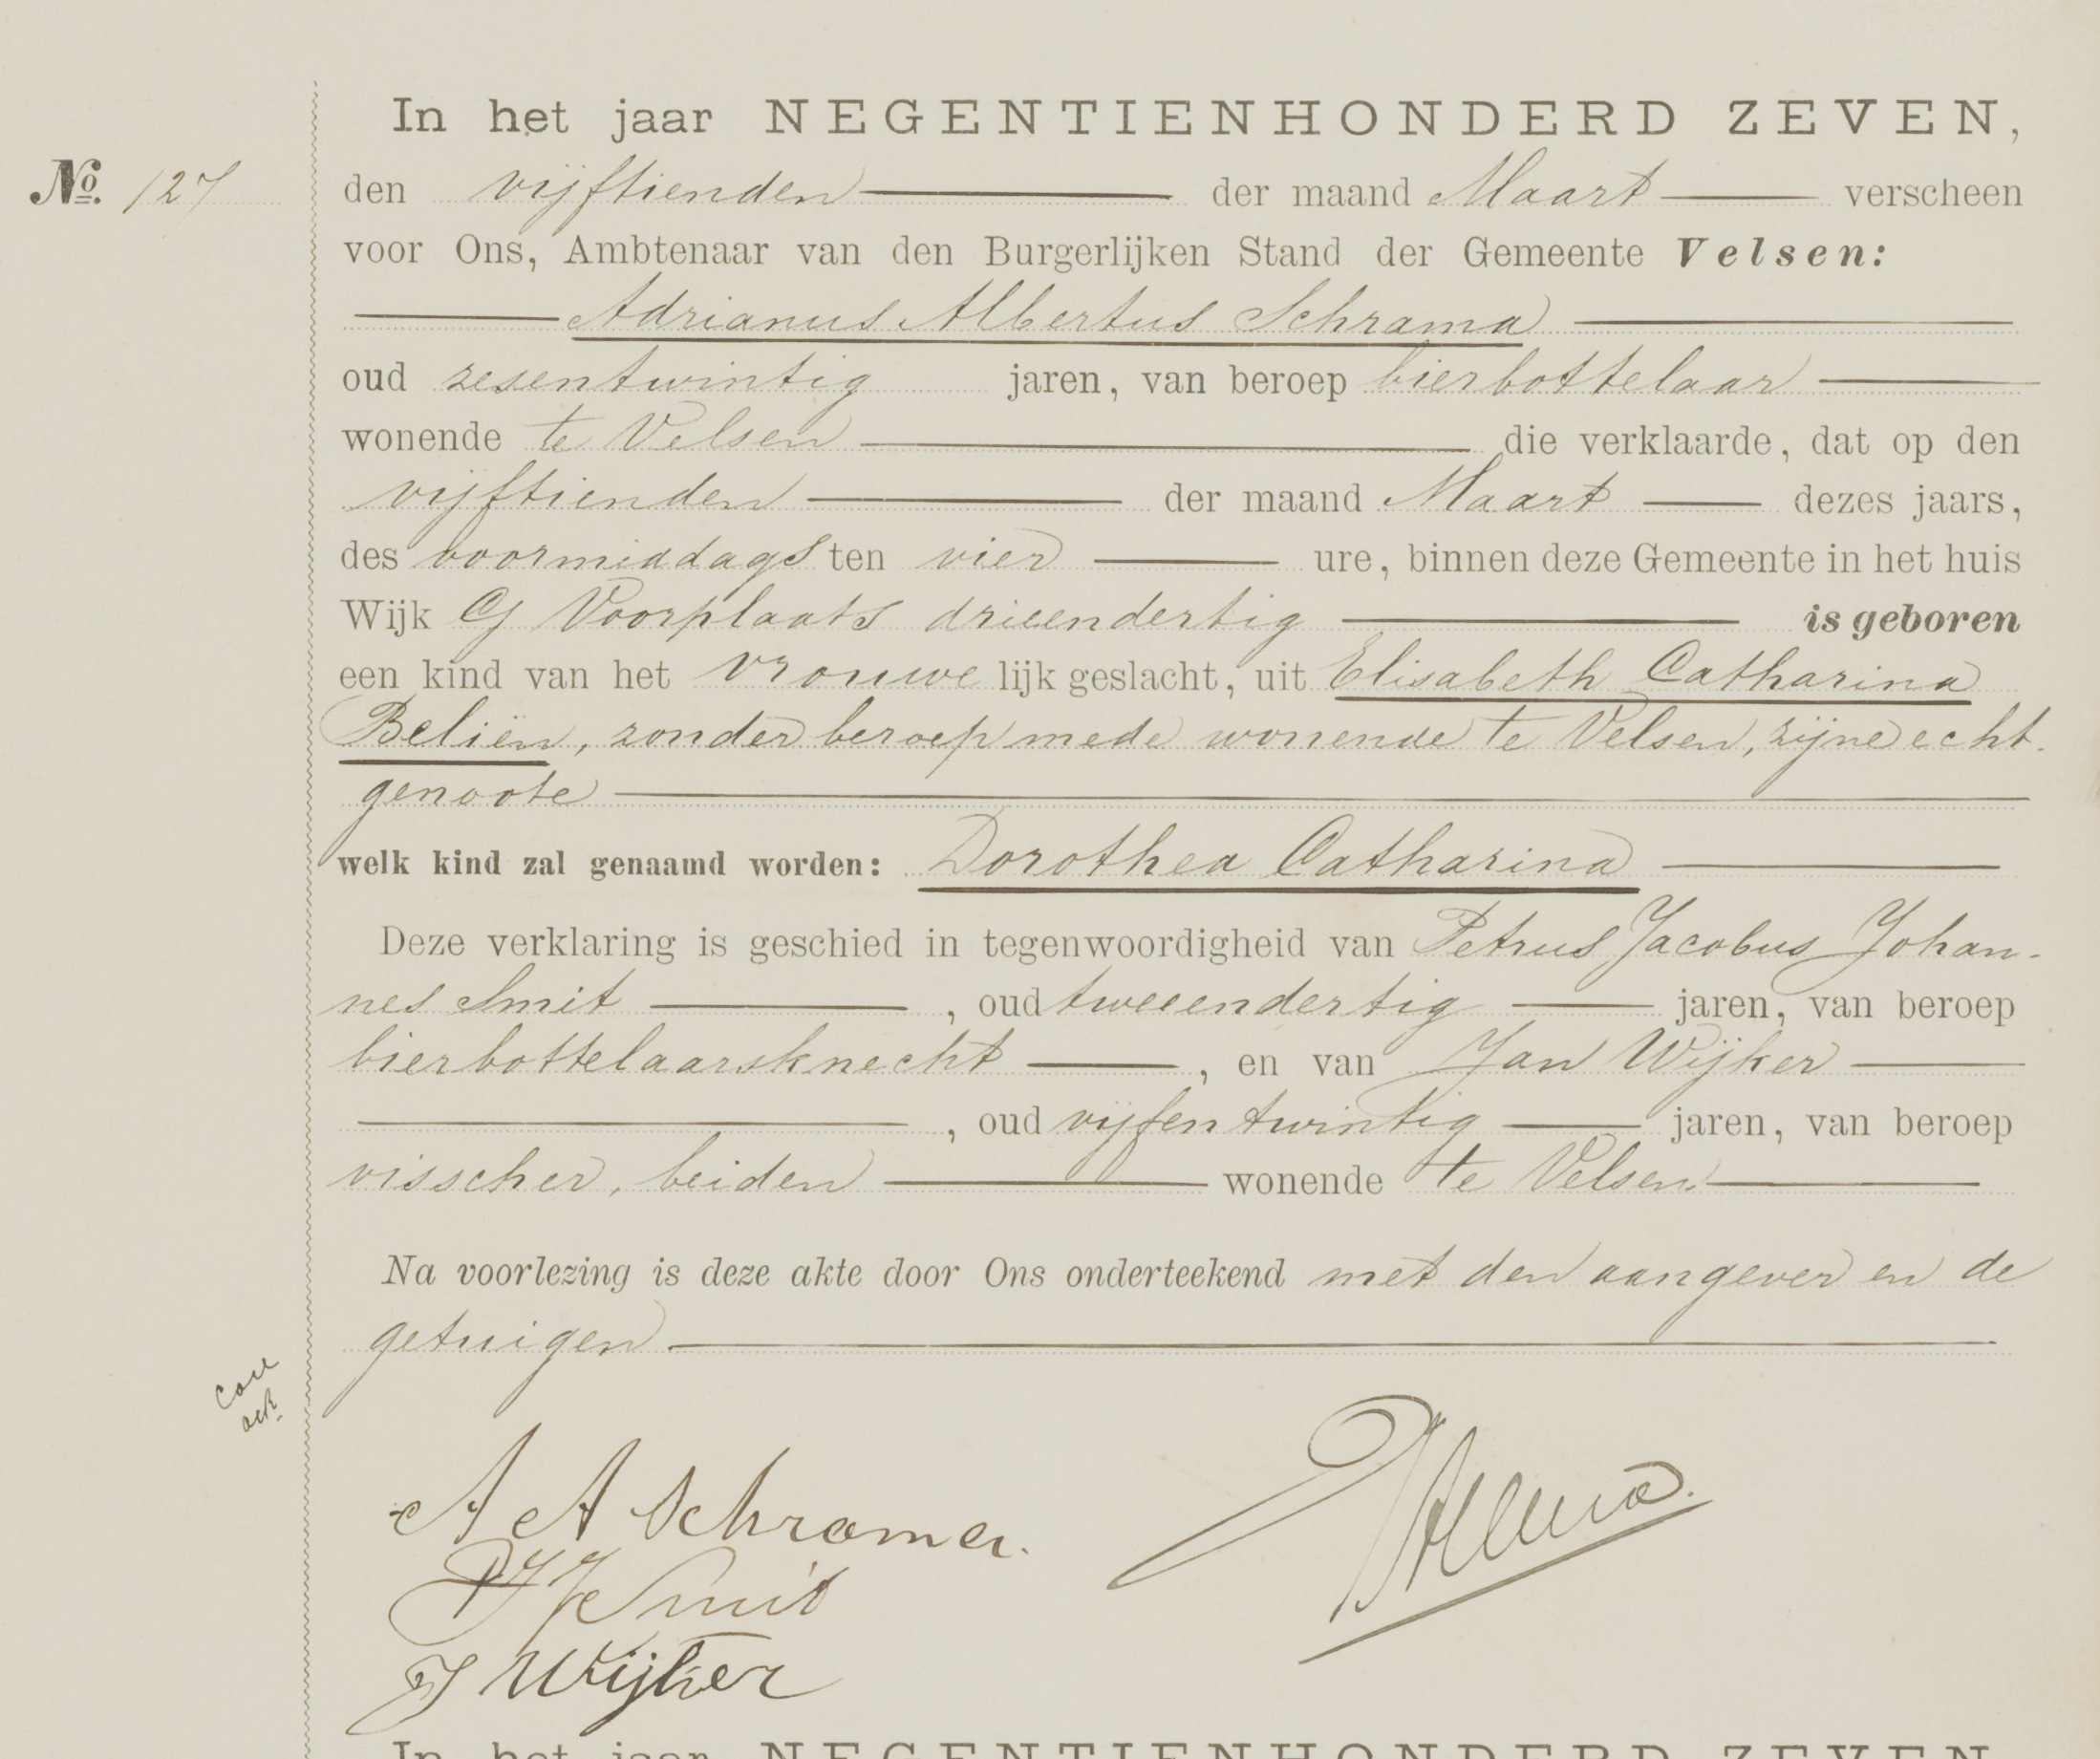 In het jaar NEGENTIENHONDERD ZEVEN,
No. 127 den vijftienden der maand Maart verscheen
voor Ons, Ambtenaar van den Burgerlijken Stand der Gemeente Velsen:
Adrianus Albertus Schrama
oud zesentwintig jaren, van beroep bierbottelaar
wonende te Velsen die verklaarde, dat op den
vijftienden der maand Maart dezes jaars,
des voormiddags ten vier ure, binnen deze Gemeente in het huis
Wijk G Voorplaats drieendertig is geboren
een kind van het vrouwe lijk geslacht, uit Elisabeth Catharina
Beliën, zonder beroep mede wonende te Velsen, zijne echt-
genoote
welk kind zal genaamd worden: Dorothea Catharina
Deze verklaring is geschied in tegenwoordigheid van Petrus Jacobus Johan-
nes Smit, oud tweeendertig jaren, van beroep
bierbottelaarsknecht, en van Jan Wijker
, oud vijfentwintig jaren, van beroep
visscher, beiden wonende te Velsen
Na voorlezing is deze akte door Ons onderteekend met den aangever en de
getuigen
A A Schrama.
P J J Smit
J Wijker
In het jaar NEGENTIENHONDERD ZEVEN